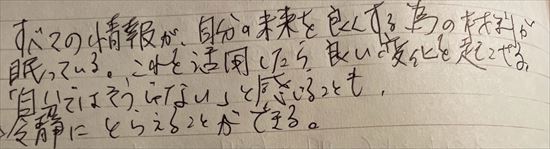 すべての情報が、自分の未来を良くする為の材料が
眠っている。これを活用したら良い変化を起こせる。
「自分ではそうじゃない」と感じることも、
冷静にとらえることができる。